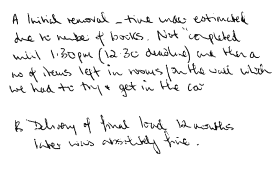 A Initial removal - time under estimated
due to number of books. Not completed
until 1.30pm (12.30 deadline) and then a
no of items left in rooms / on the wall which
we had to try & get in the car
B Delivery of final load 12 months
later was absolutely fine.